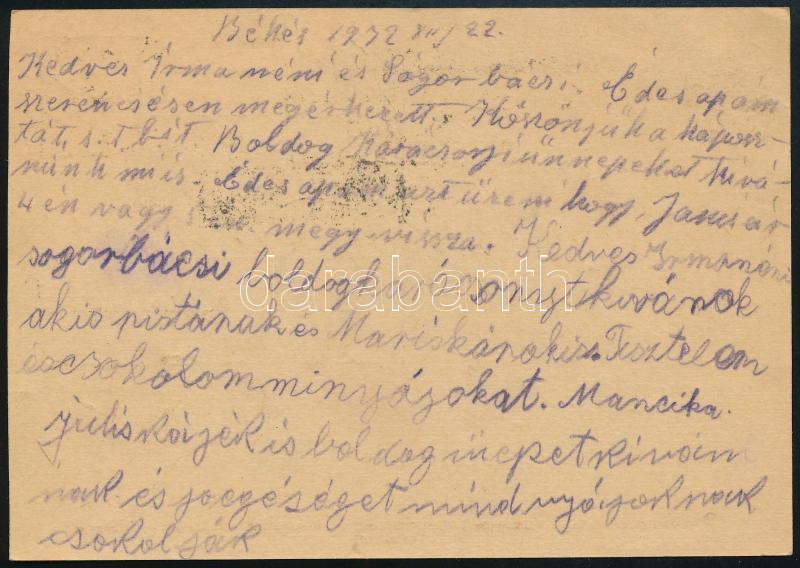 Békés 1932 XII/22.
Kedves Irma néni és Sógor bácsi. Édes apám
szerencsésen megérkezett. Köszönjük a káposz-
tát, s.t.bit. Boldog Karácsonyi ünnepeket kivá-
nunk mi is. Édes apám azt üzeni hogy, Január
4 én vagy megy vissza. Kedves Irmanéni
sogorbácsi boldogkarácsonyt kivánok
akis pistának és Mariskánakis. Tisztelem
éscsokolommindyájokat. Mancika.
juliskájék is boldog ünepet kiván
nak és joegéséget mindnyájoknak
csokolják
darabanth